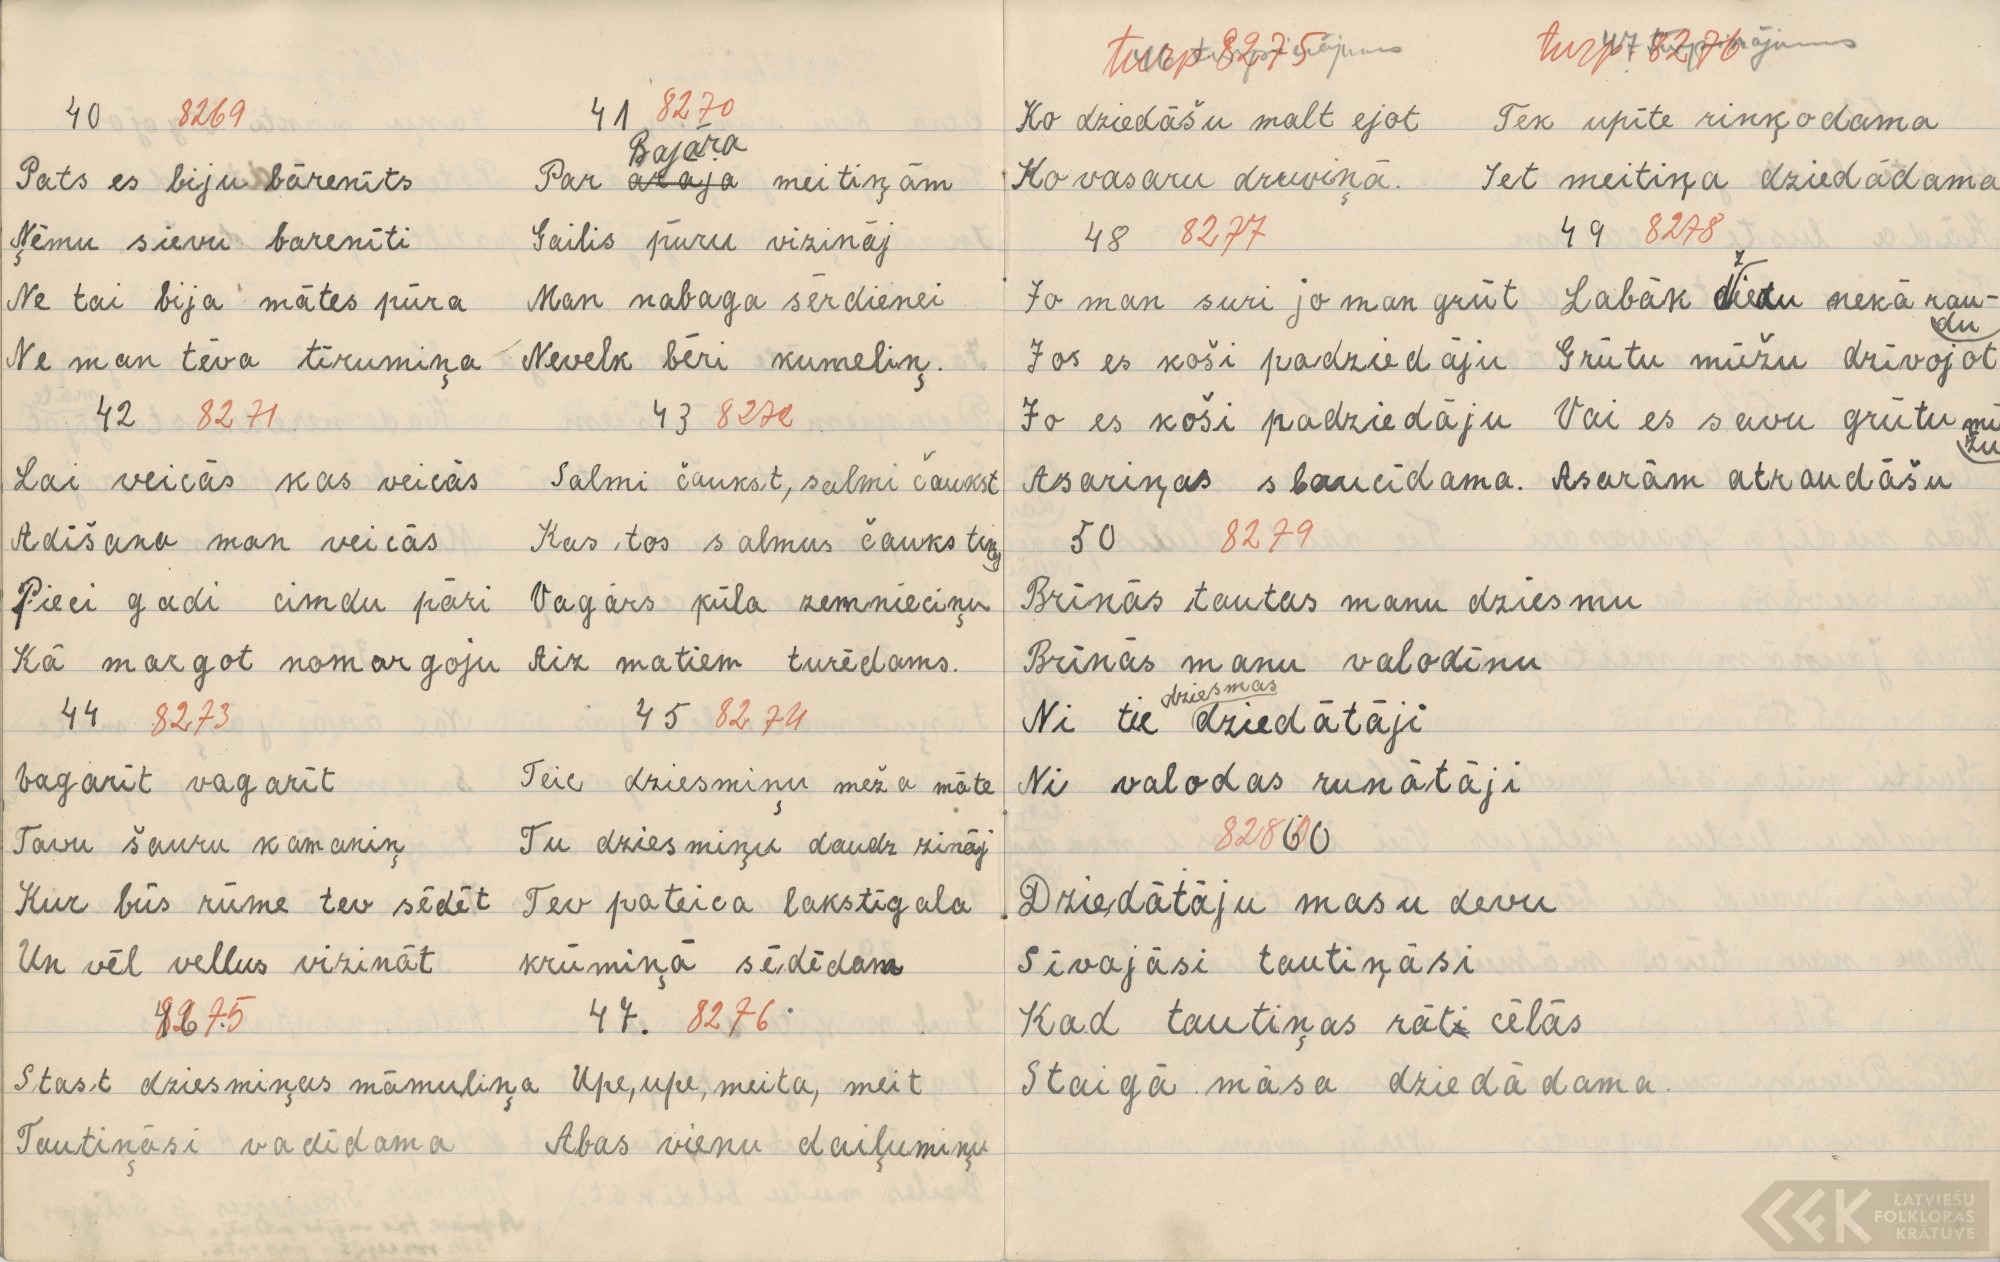 40 8269
Pats es biju bārenīts
Ņēmu sievu barenīti
Ne tai bija mātes pūra
Ne man tēva tīrumiņa
41 8270
Bajāra
Par araja meitiņām
Gailis pūru vizināj
Man nabaga sērdienei
Nevelk bēri kumeliņ.
42 8271
Lai veicās kas veicās
Adīšana man veicās
Pieci gadi cimdu pāri
Kā margot nomargoju
43 8272
Salmi čaukst, salmi čaukst
Kas tos salmus čaukstin
Vagārs kūla zemnieciņu
Aiz matiem turēdams.
44 8273
Vagarīt vagarīt
Tavu šauru kamaniņ
Kur būs rūme tev sēdēt
Un vēl vellus vizināt
45 8274
Teic dziesmiņu meža māte
Tu dziesmiņu daudz zināj
Tev pateica lakstīgala
krūmiņā sēdēdam
46. 8275
Stast dziesmiņas māmuliņa
Tautiņāsi vadīdama
47. 8276
Upe, upe, meita, meit
Abas vienu daiļumiņu
46 turpinājums
turp 8275
Ko dziedāšu malt ejot
Ko vasaru druviņā.
47 turpinājums
turp 8276
Tek upīte rinķodama
Iet meitiņa dziedādama
48 8277
Jo man suri jo man grūt
Jos es koši padziedāju
Jo es koši padziedāju
Asariņas slaucīdama.
49 8278
Labāk dziedu nekā rau-
du
Grūtu mūžu dzīvojot
Vai es savu grūtu mū
žu
Asarām atraudāšu
50 8279
Brīnās tautas manu dziesmu
Brīnās manu valodīnu
dziesmas
Ni tie dziedātāji
Ni valodas runātāji
8280 60
Dziedātāju masu devu
Sīvajāsi tautiņāsi
Kad tautiņas rāti cēlās
Staigā māsa dziedādama.
LATVIEŠU
FOLKLORAS
KRĀTUVE